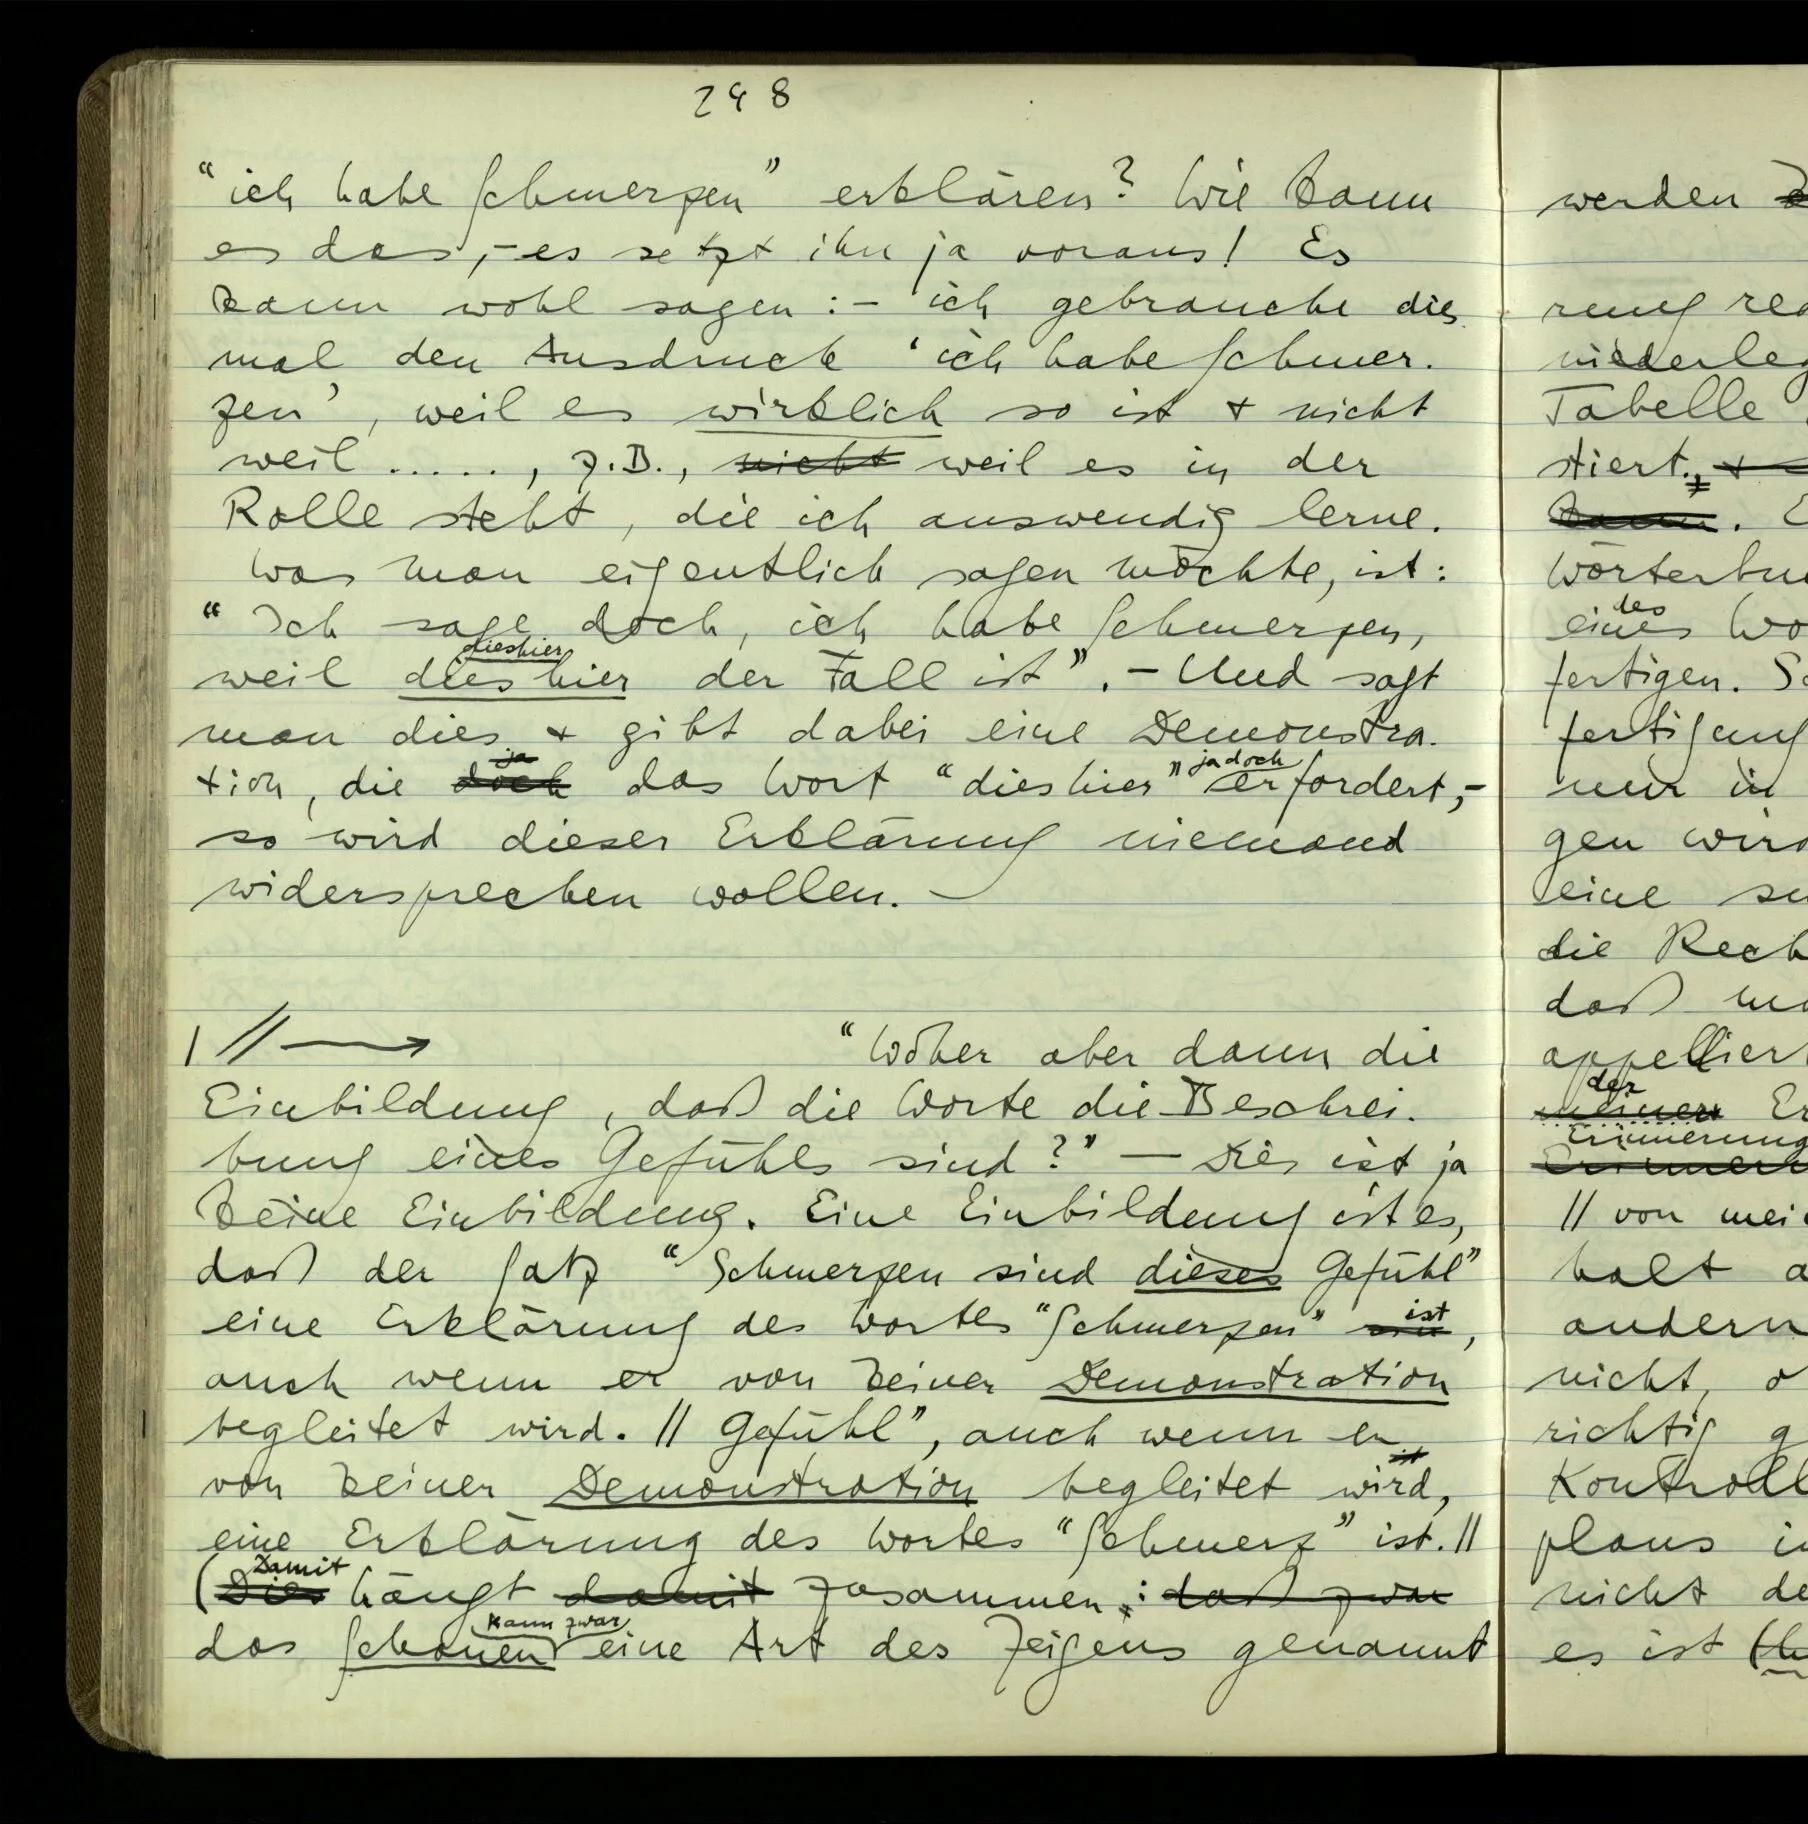 248
"ich habe Schmerzen" erklären? Wie kann
es das, – es setzt ihn ja voraus! Es
kann wohl sagen: – ich gebrauche dies
mal den Ausdruck 'ich habe Schmer-
zen', weil es wirklich so ist + nicht
weil ....., z.B., nicht weil es in der
Rolle steht, die ich auswendig lerne.
Was man eigentlich sagen möchte, ist:
"Ich sage doch, ich habe Schmerzen,
dieshier
weil dies hier der Fall ist". – Und sagt
man dies + gibt dabei eine Demonstra-
ja
ja doch
tion, die doch das Wort "dieshier" erfordert, –
so wird dieser Erklärung niemand
widersprechen wollen. –
| // → "Woher aber dann die
Einbildung, daß die Worte die Beschrei-
bung eines Gefühls sind?" – Dies ist ja
keine Einbildung. Eine Einbildung ist es,
daß der Satz "Schmerzen sind dieses Gefühl"
ist
eine Erklärung des Wortes "Schmerzen",
auch wenn er von keiner Demonstration
begleitet wird. // Gefühl", auch wenn er
ist
von keiner Demonstration begleitet wird,
eine Erklärung des Wortes "Schmerz" ist. //
Damit
(Dies hängt damit zusammen: daß zwar
kann zwar
das Schauen eine Art des Zeigens genannt
werden
rung
Tabelle
stiert.
kann.
des
eines
fertigen.
fertigung
nur in
gen wird
eine
die
daß
appelliert
der
meiner
Erinnerung
// von
halt
andern
nicht,
richtig
plans
nicht
es ist